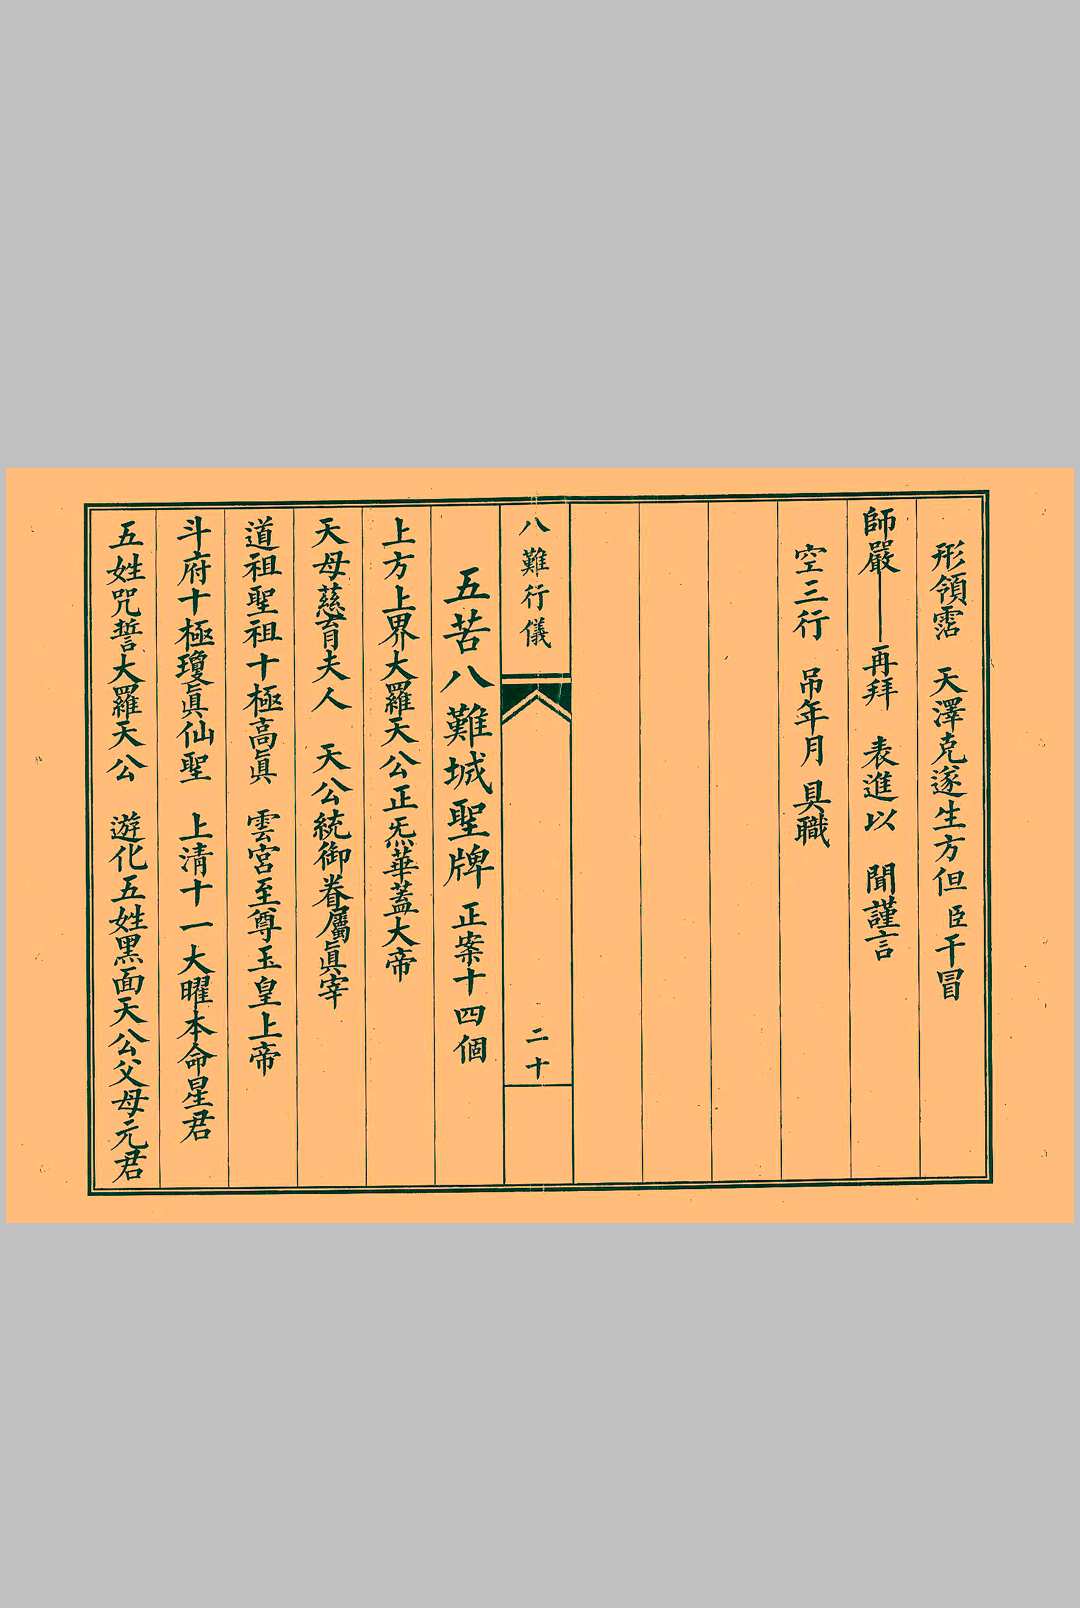 形領霑　天澤克遂生方但臣干冒
師嚴——再拜　表進以　聞謹言
空三行　吊年月　具職
八難行儀
二十
五苦八難城聖牌　正案十四個
上方上界大羅天公正炁華蓋大帝
天母慈育夫人　天公統御眷屬眞宰
道祖聖祖十極高眞　雲宮至尊玉皇上帝
斗府十極瓊眞仙聖　上清十一大曜本命星君
五姓咒誓大羅天公　遊化五姓黑面天公父母元君